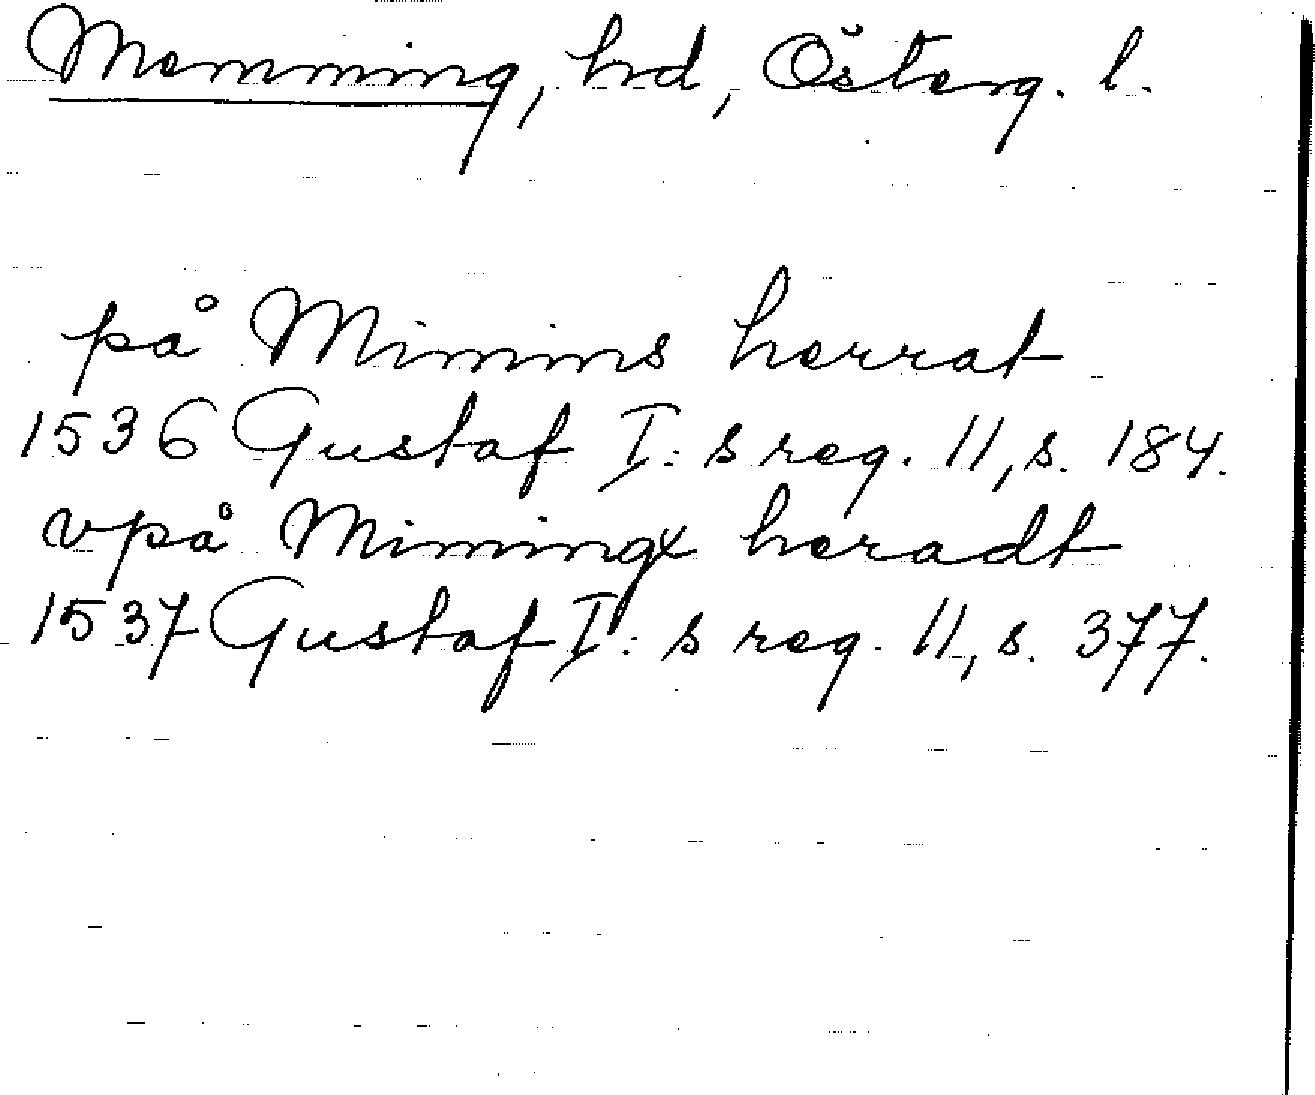 Memming, hd, Österg. l.
på Mimins herrat
1536 Gustaf I: s reg. 11, s. 184.
vpå Mimingx heradt
1537 Gustaf I: s reg. 11, s. 377.